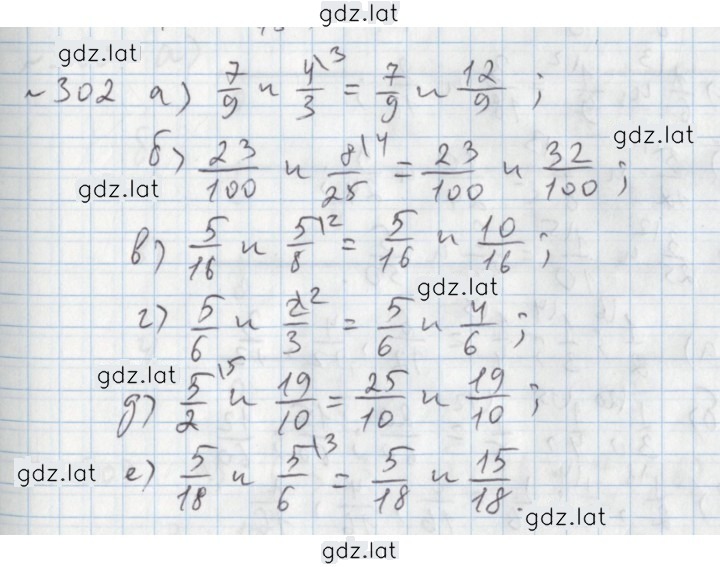 gdz.lat
gdz.lat
~302 а) 7/9 и 4/3 \3 = 7/9 и 12/9 ;
gdz.lat
б) 23/100 и 8/25 \4 = 23/100 и 32/100 ;
gdz.lat
в) 5/16 и 5/8 \2 = 5/16 и 10/16 ;
gdz.lat
г) 5/6 и 2/3 \2 = 5/6 и 4/6 ;
gdz.lat
д) 5/2 \5 и 19/10 = 25/10 и 19/10 ;
gdz.lat
е) 5/18 и 5/6 \3 = 5/18 и 15/18.
gdz.lat
gdz.lat